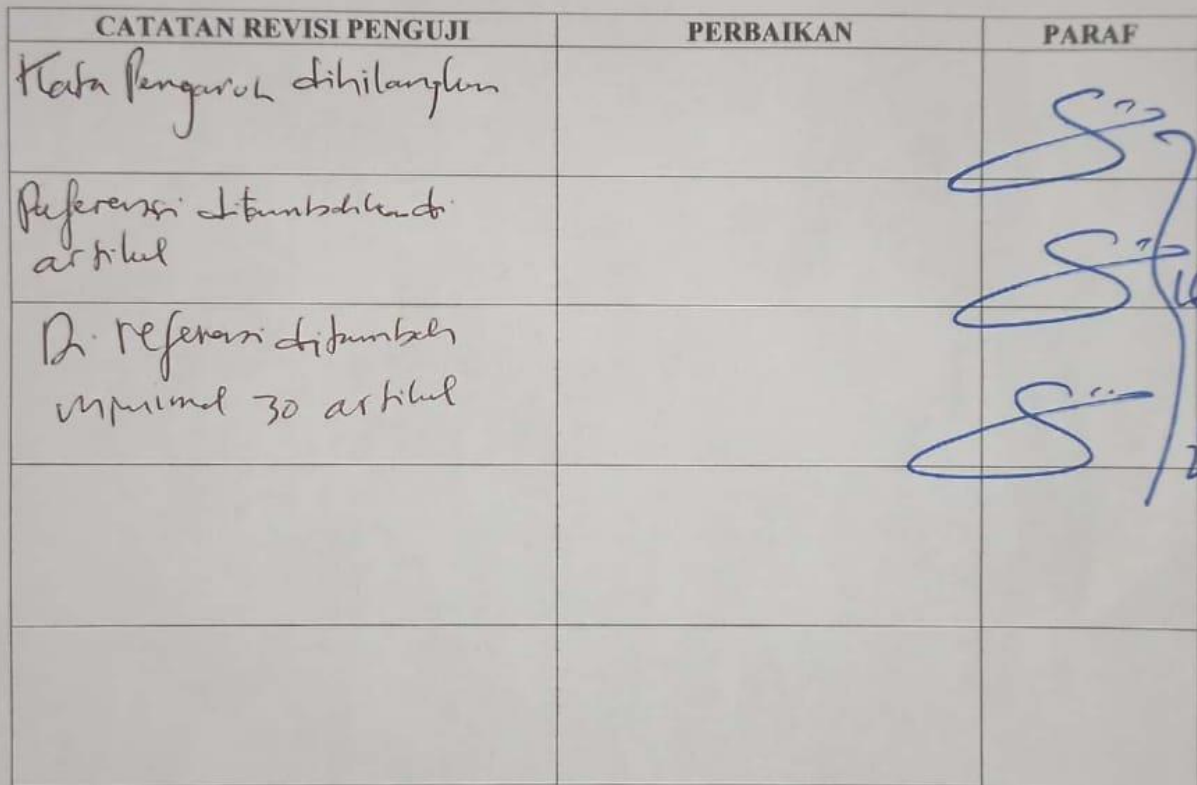 CATATAN REVISI PENGUJI PERBAIKAN PARAF
Kata Pengaruh dihilangkan
Referensi ditambahkan di
artikel
Di referensi ditambah
minimal 30 artikel